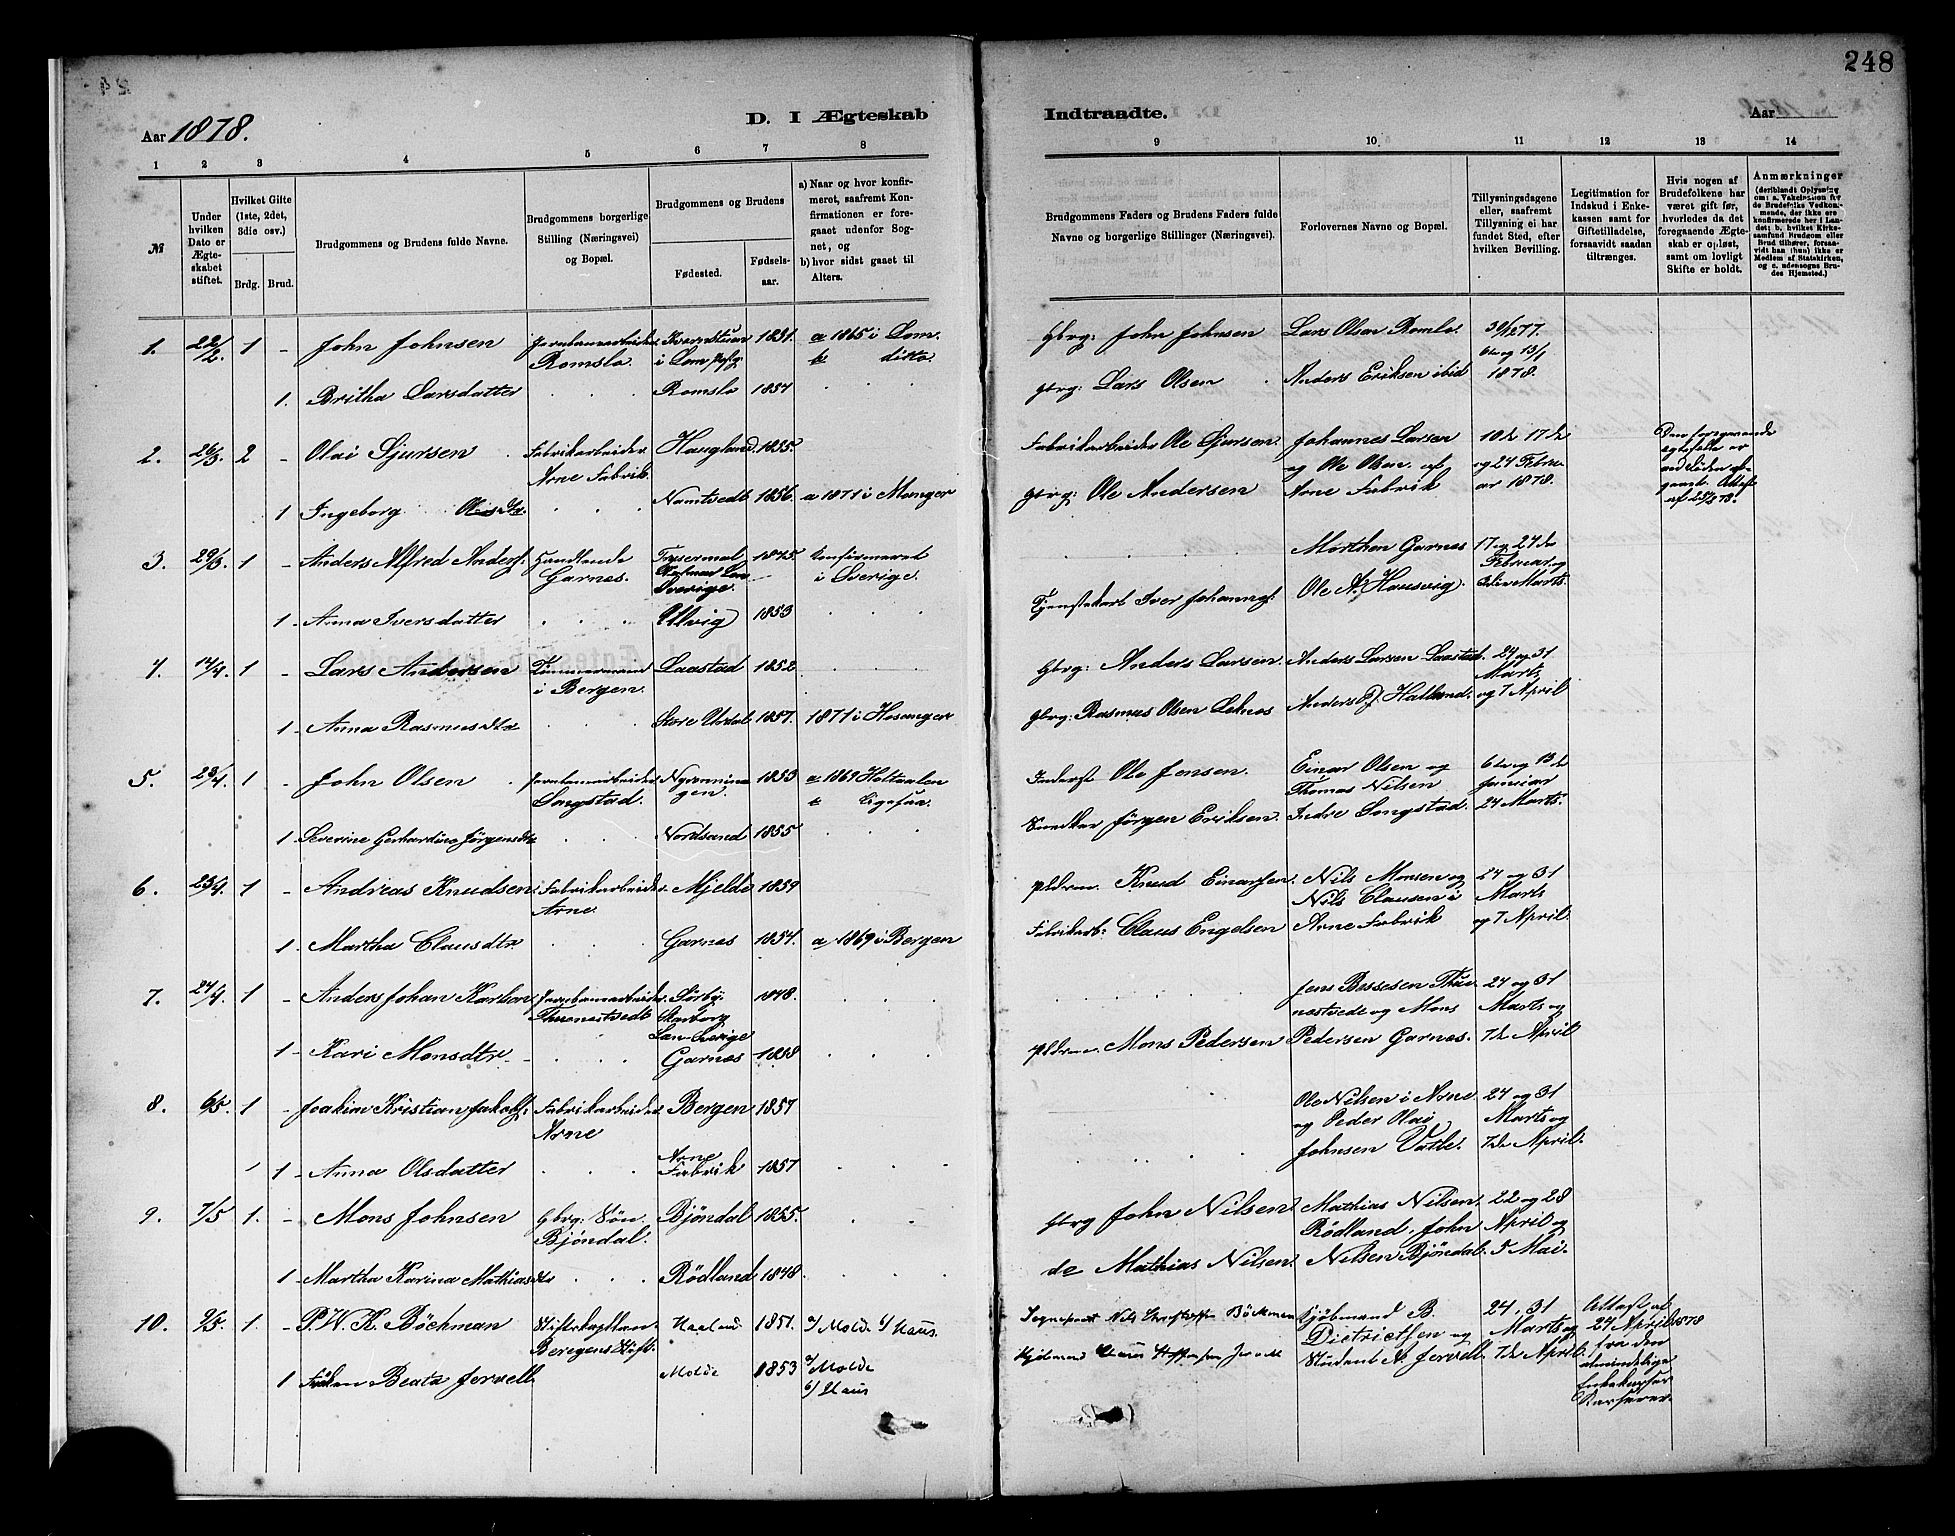 248
Aar 1878.
D. I Ægteskab
Indtraadte.
Aar
1 2 3 4 5 6 7 8
9 10 11 12 13 14
№
Under hvilken Dato er Ægteskabet stiftet.
Hvilket Gifte (1ste, 2det, 3die osv.)
Brdg. Brud.
Brudgommens og Brudens fulde Navne.
Brudgommens borgerlige Stilling (Næringsvei) og Bopæl.
Brudgommens og Brudens
Fødested.
Fødselsaar.
a) Naar og hvor konfirmeret, saafremt Konfirmationen er foregaaet udenfor Sognet, og
b) hvor sidst gaaet til Alters.
Brudgommens Faders og Brudens Faders fulde Navne og borgerlige Stillinger (Næringsvei).
Forlovernes Navne og Bopæl.
Tillysningsdagene eller, saafremt Tillysning ei har fundet Sted, efter hvilken Bevilling.
Legitimation for Indskud i Enkekassen samt for Giftetilladelse, forsaavidt saadan tiltrænges.
Hvis nogen af Brudefolkene har været gift før, hvorledes da det foregaaende Ægteskab er opløst, samt om lovligt Skifte er holdt.
Anmærkninger
1. 22/2. 1 - John Johnsen Jernbanearbeider Romslo. i Lom Pgld. 1831. a 1865 i Lom. b ditto. Gbrg: John Johnsen Lars Olsen Romslo. 30/12 77. 6te og 13/1 1878.
1. Britha Larsdatter Romslo 1854 gbrg: Lars Olsen Anders Eriksen ibid
2. 26/3. 2 - Olai Sjursen Fabrikarbeider Arne Fabrik. Haugland 1855. Fabrikarbeider Ole Sjursen. Johannes Larsen og Ole Olsen af Arne Fabrik 10de 17de og 24 Februar 1878. Den foregaaende egtefelle er ved Døden afgaaet. Attest af
1 Ingeborg Olsdtr. Namtvedt 1856. a 1871 i Manger gbrg: Ole Andersen
3. 29/3. 1 - Anders Alfred Anders. Handlende Garnes. Sverige. 1845. Konfirmeret i Sverige. Morthen Garnes Ole A. Hausvig. 17 og 24de Februar og 3die Marts.
1 - Anna Iversdatter Ulvig 1853 Tjenestekarl Iver Johannes.
4. 12/4. 1 - Lars Andersen Tømmermand i Bergen. Laastad 1852 Gbrg: Anders Larsen. Anders Larsen Laastad. 24 og 31 Marts og 7 April
1 Anna Rasmusdtr Store Urdal 1857. 1871 i Hosanger gbrg: Rasmus Olsen Leknes Anders J. Hatland.
5. 23/4. 1 - John Olsen Jernbanearbeider Songstad. 1853 a 1869 Holtaalen b Ligesaa. Inderst Ole Jensen. Einar Olsen og Thomas Nilsen Indre Songstad. 6te og 13de Januar 24 Marts.
1. Severine Gerhardine Jørgensdtr Nordsand 1855 Snedker Jørgen Eriksen.
6. 23/4. 1 - Andreas Knudsen Fabrikarbeider Arne. Mjelde 1859 Pldrm. Knud Einarsen. Nils Monsen og Nils Clausen i Arne Fabrik 24 og 31 Marts og 7 April.
1. Martha Clausdtr Garnes 1854. a 1869 i Bergen Fabrikarb: Claus Engelsen
7. 24/4. 1 - Anders Johan Karlson Jernbanearbeider Thunestvedt Sørby. Skarborg Lan Sverige 1848. Jens Bessesen Thunestvedt og Mons Pedersen Garnes. 24 og 31 Marts og 7de April
1 - Kari Monsdtr Garnes 1858 Pldrm. Mons Pedersen
8. 6/5. 1 - Joakim Kristian Jakobs. Fabrikarbeider Arne Bergen 1857 Ole Nilsen i Arne og Peder Olai Johnsen Vatle. 24 og 31 Marts og 7de April.
1 - Anna Olsdatter Arne Fabrik 1857
9. 7/5 1. - Mons Johnsen Gbrg: Søn. Bjøndal. Bjöndal 1855. gbrg John Nilsen Mathias Nilsen Rödland, John Nilsen Bjöndal. 22 og 28 April og 5 Mai.
1 - Martha Karina Mathiasdtr Rödland 1848. do Mathias Nilsen.
10. 9/5. 1. - P. W. K. Böckman Stiftskapellan Bergens Stift. 1851. a/ Molde b/ Haus. Sogneprest Nils Christoffer Böckman Kjøbmand B. Dietrichsen og Student A. Jervell. 24, 31 Marts og 7de April. Attest af 24 April 1878 fra den almindelige Enkekasses Kasserer.
1 Frøken Beata Jervell Molde 1853 a/ Molde b/ Haus Kjøbmand Claus Steffensen Jervell